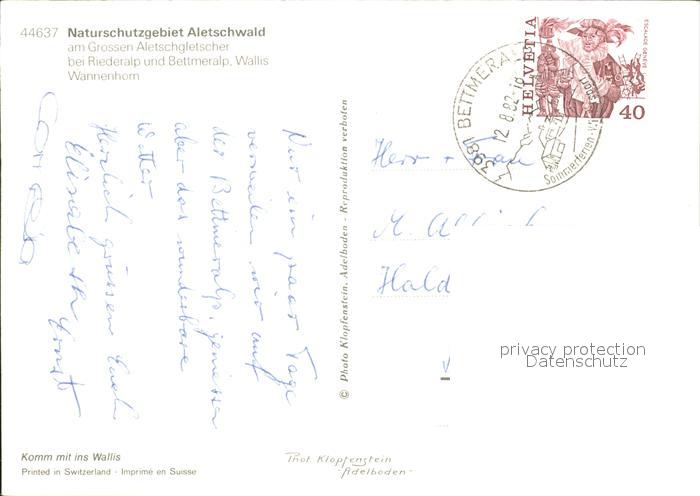 44637 Naturschutzgebiet Aletschwald
am Grossen Aletschgletscher
bei Riederalp und Bettmeralp, Wallis
Wannenhorn
HELVETIA
ESCALADE GENÈVE
40
BETTMERALP
12.8.82
Sommerferien
Nur ein paar Tage
verweilen wir auf
der Bettmeralp, geniessen
aber das wunderbare
Wetter
Herzlich grüssen Euch
Elisabeth Ernst
© Photo Klopfenstein, Adelboden - Reproduktion verboten
Herr + Frau
M.
Hald
privacy protection
Datenschutz
Komm mit ins Wallis
Printed in Switzerland - Imprimé en Suisse
Phot. Klopfenstein
-Adelboden-